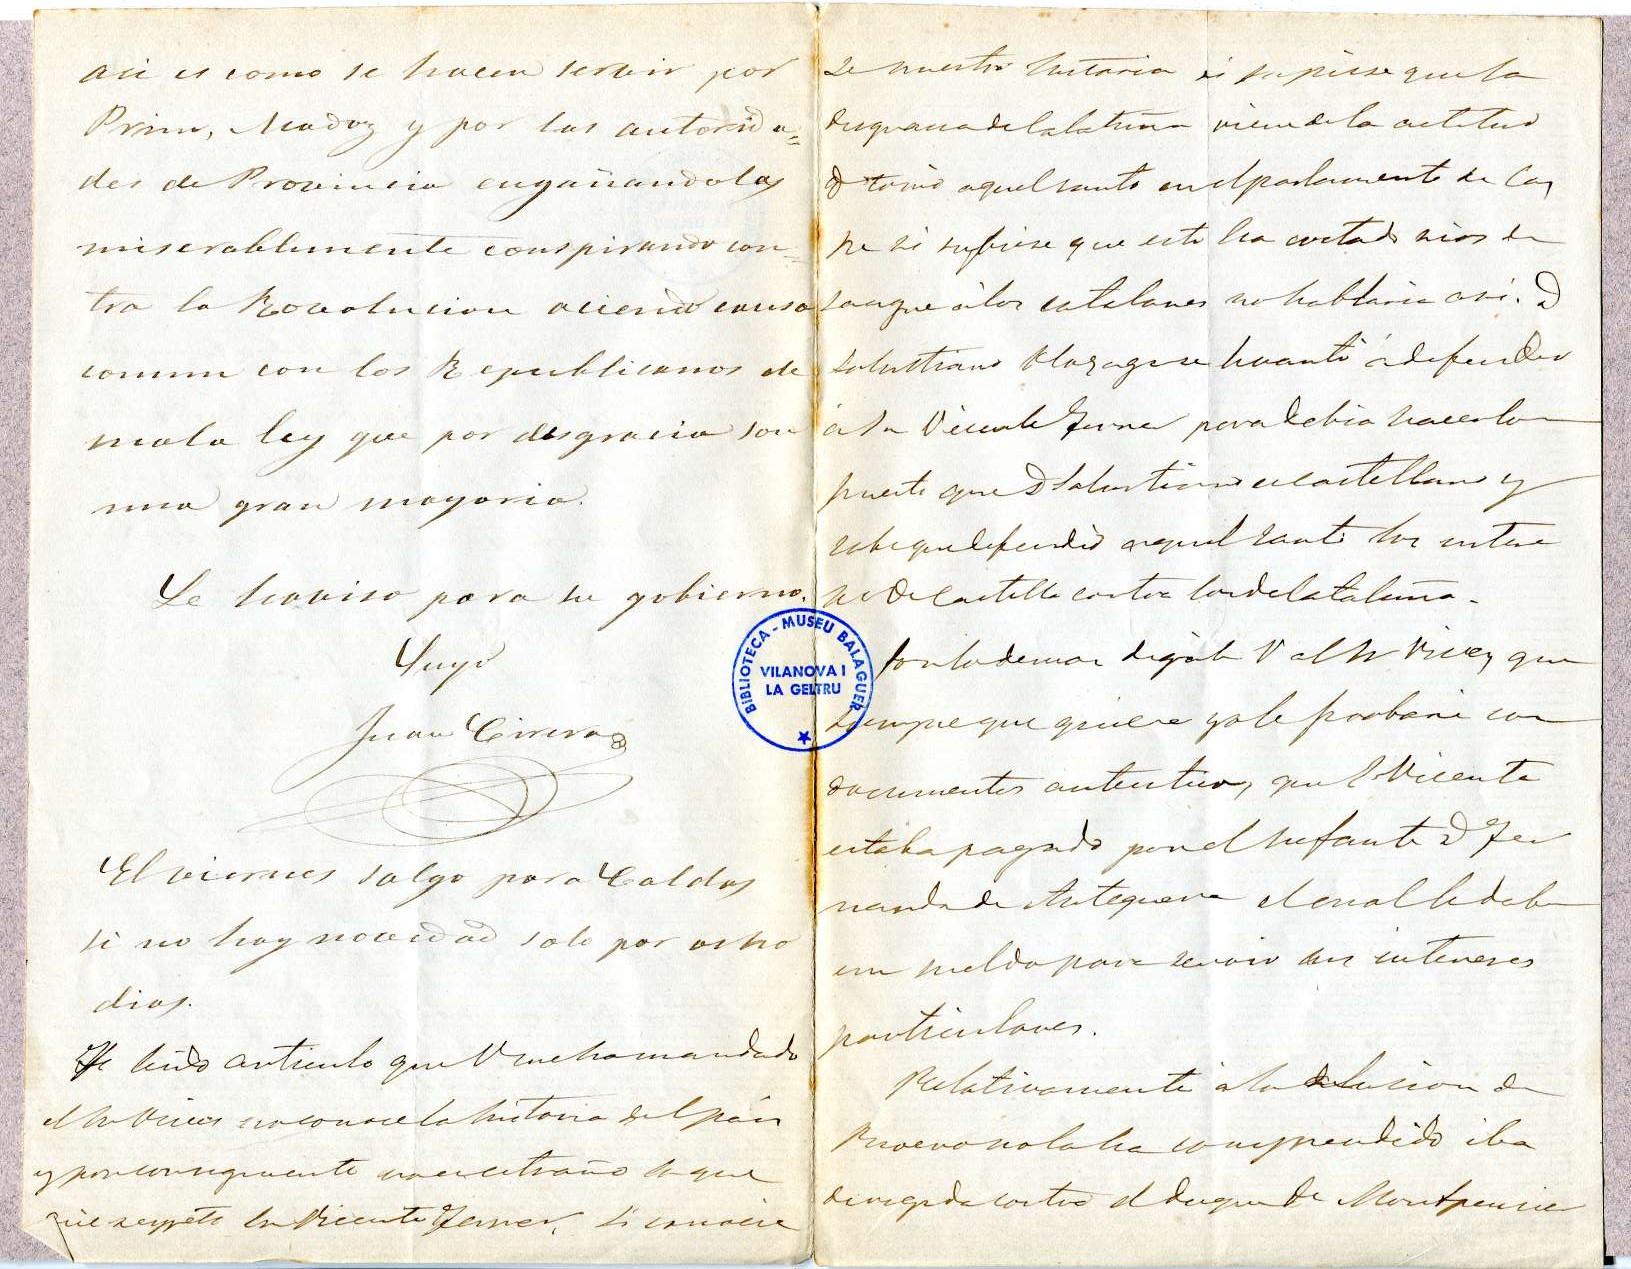 asi es como se hacen servir por
Prim, Madoz y por las autorida=
des de Provincia engañandolas
miserablemente conspirando con=
tra la Rovolucion aciendo causa
comun con los Republicanos de
mala ley que por desgracia son
una gran mayoria.
Le haviso para su gobierno.
Suyo
Juan Cirera
El viernes salgo para Caldas
si no hay novedad solo por ocho
dias.
He leido articulo que V me ha mandado
el Sr Vives no conoce la historia del páis
y por consiguiente no es estraño lo que
dice respeto Sn Vicente Ferrer. Si conocie
se nuestra historia si supiese que la
desgracia de Cataluña viene de la actitud
q tomó aquel santo en el parlamento de Cas
pe si supiese que esto ha costado rios de
sangre á los catalanes no hablaria asi. D
Salustiano Olozaga se levantó á defender
á Sn Vicente Ferrer pero debia hacerlo
puesto que D Salustiano es castellano y
sabe que defendió aquel santo los intere
ses de Castilla contra los de Cataluña.
Por lo demas digale V al Sr Vives que
siempre que quiera yo le probaré con
documentos autenticos, que S. Vicente
estaba pagado por el Infante D Fer
nando de Antequera el cual le daba
un sueldo para servir sus intereses
particulares.
Relativamente á la alusion de
no la ha comprendido iba
dirigida contra el duque de Montpensier
BIBLIOTECA - MUSEU BALAGUER
VILANOVA I
LA GELTRU